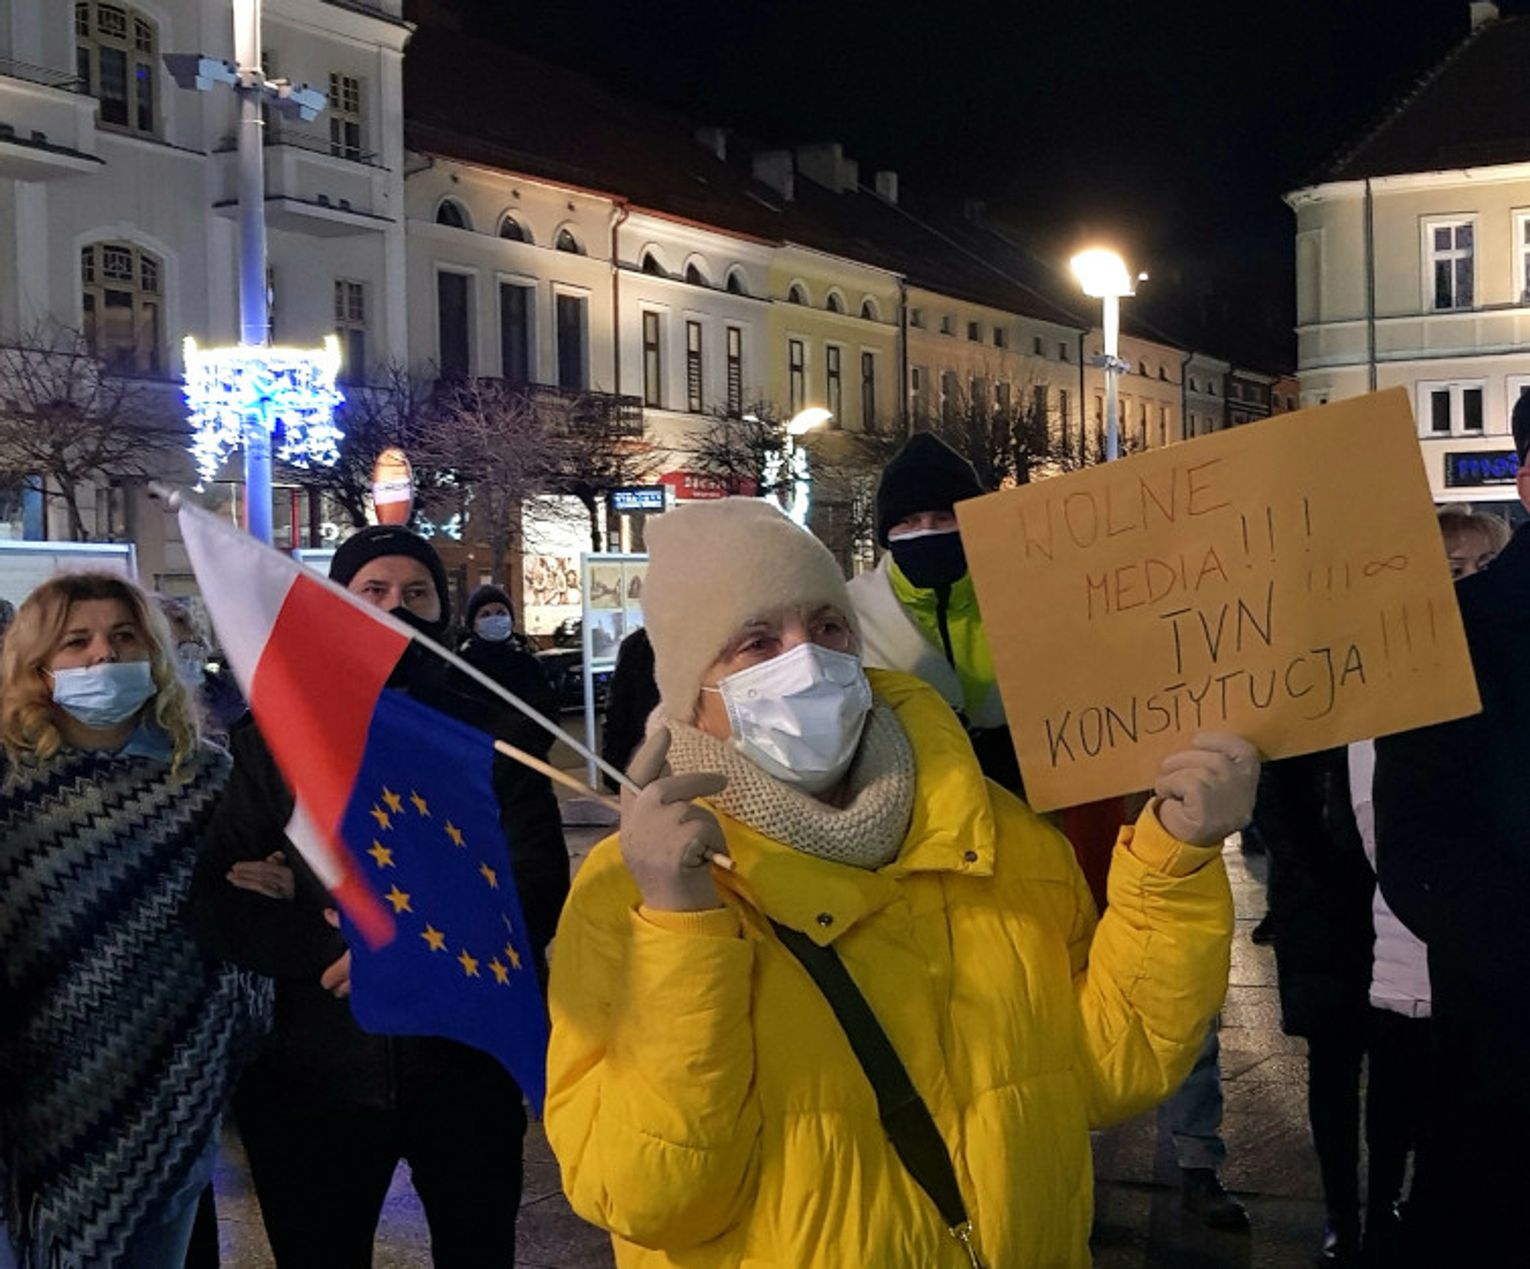 WOLNE
MEDIA!!!
TVN !!!∞
KONSTYTUCJA!!!